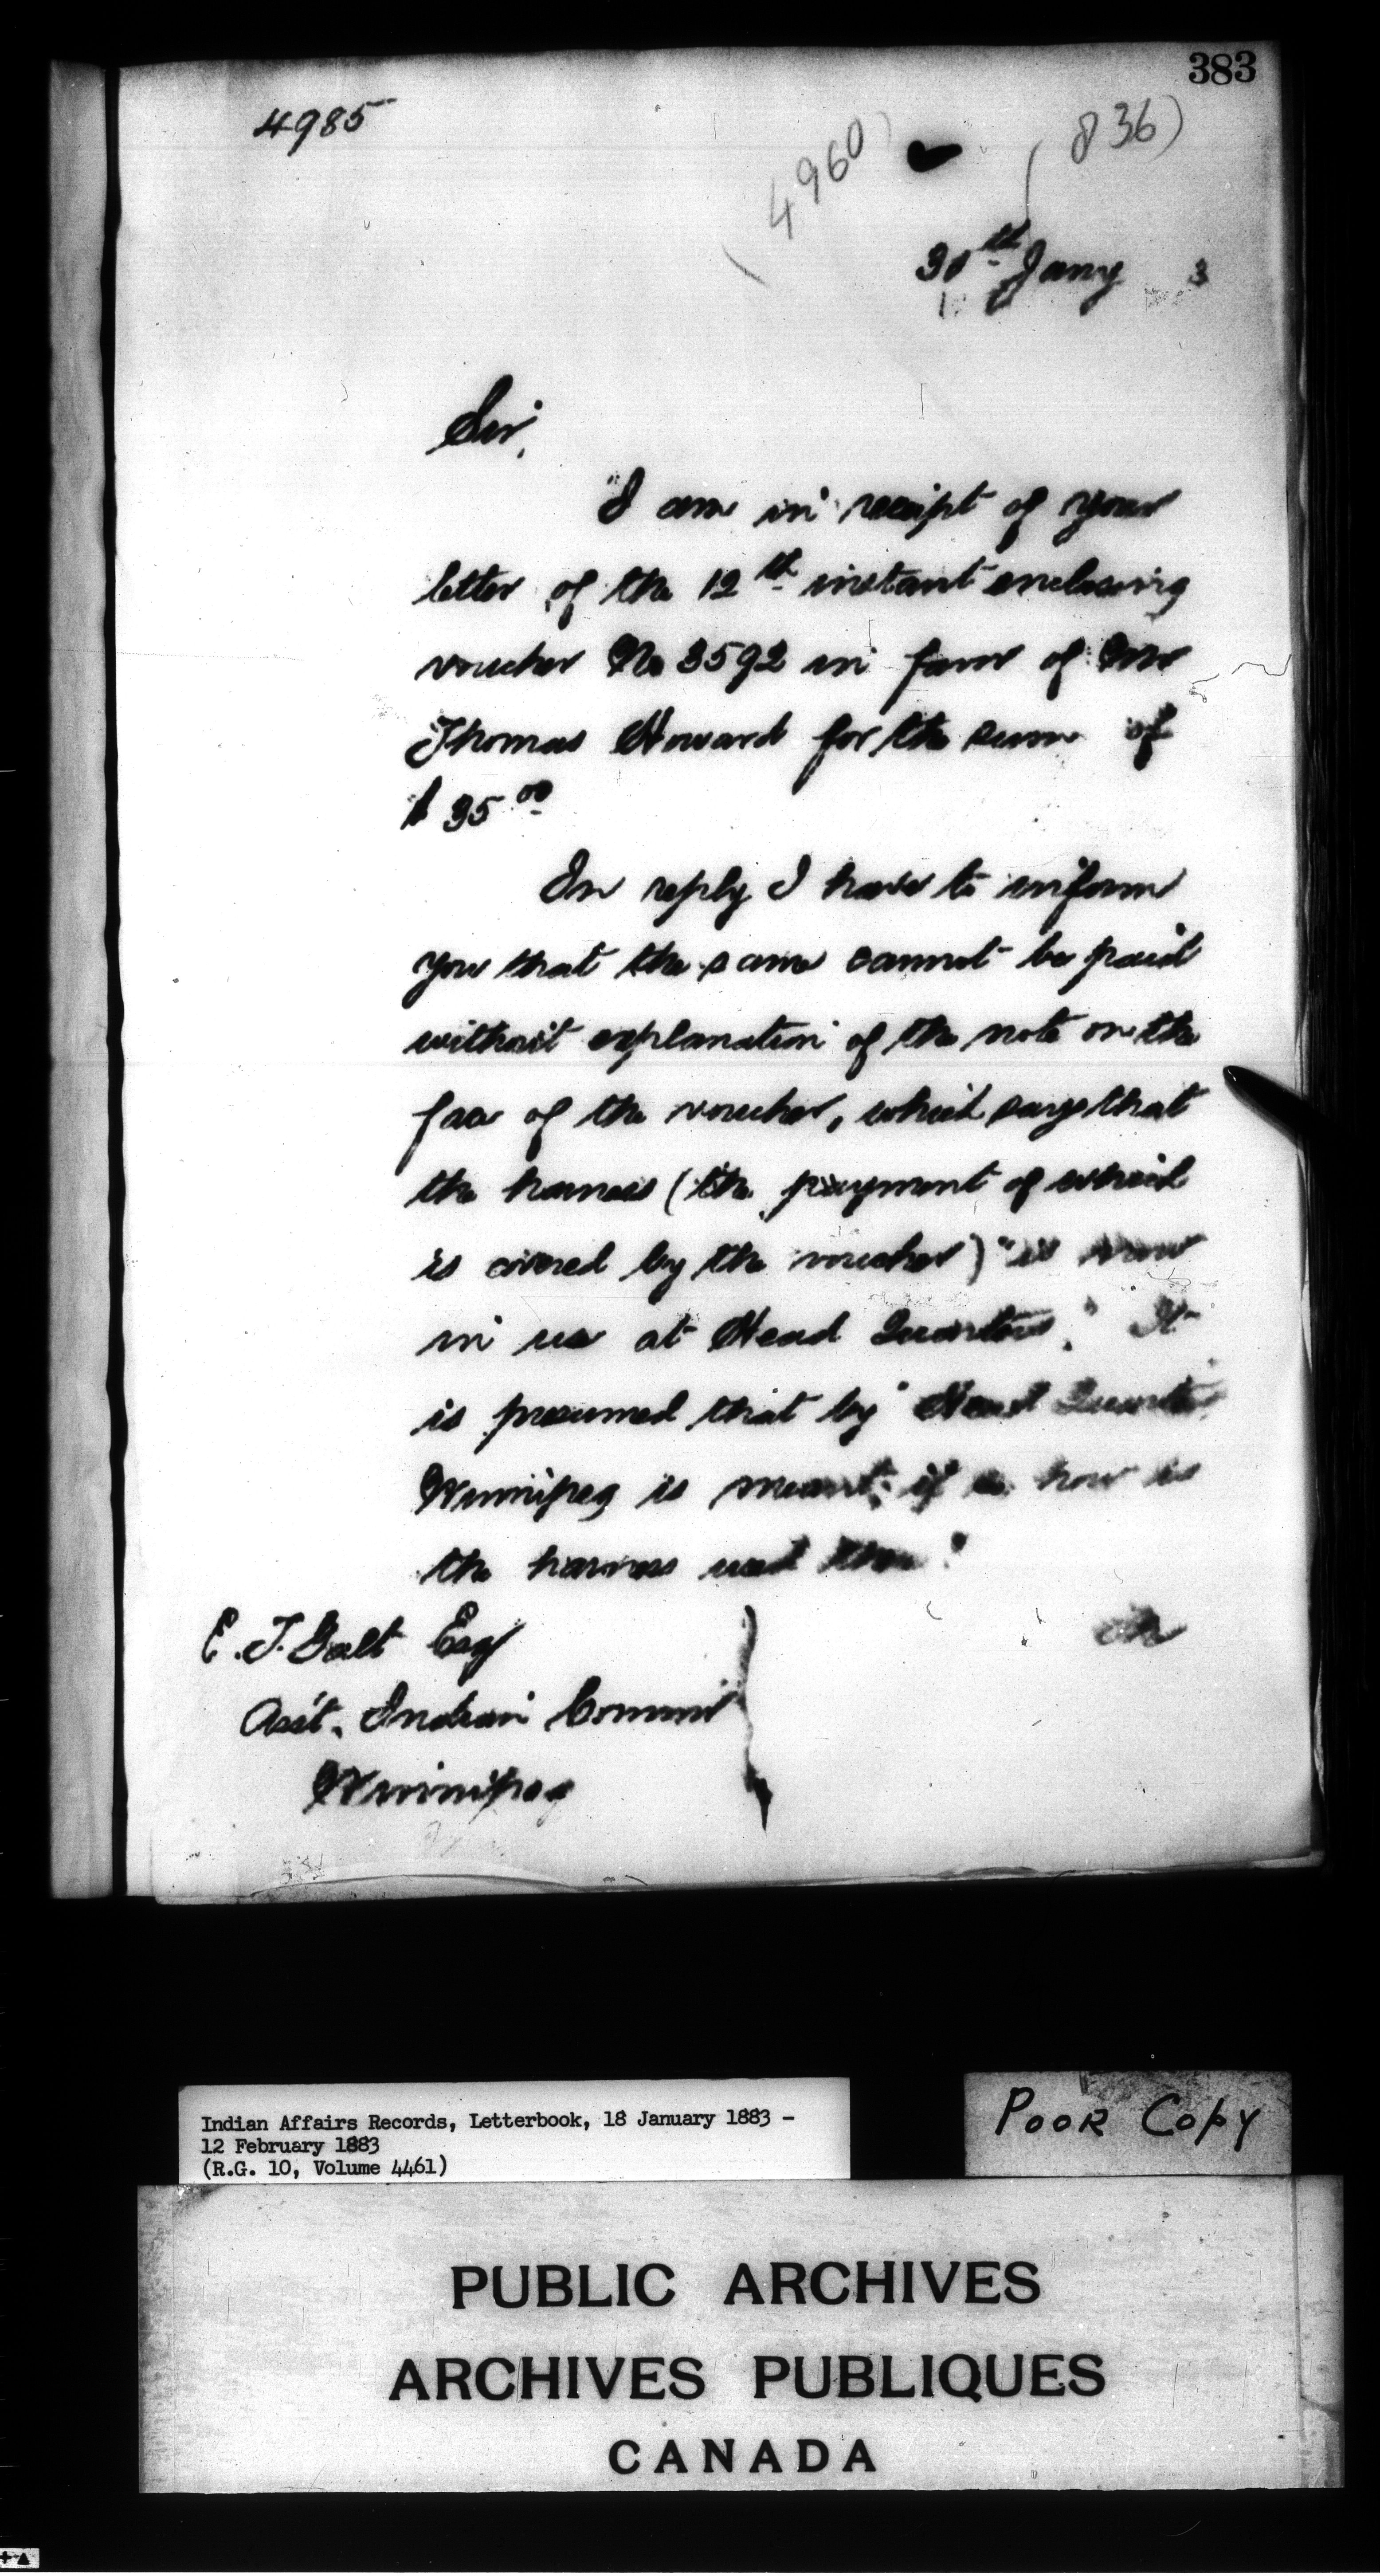 383
4985
(4960)
(836)
30th Jany 3
Sir,
I am in receipt of your
letter of the 12th instant enclosing
voucher No 3592 in favor of Mr
Thomas Howard for the sum of
$35.00
In reply I have to inform
you that the same cannot be paid
without explanation of the note on the
face of the voucher, which says that
the harness (the payment of which
is covered by the voucher) "is now
in use at Head Quarters." It
is presumed that by "Head Quarters"
Winnipeg is meant; if so how is
the harness used there?
E. T. Galt Esq
Ass't. Indian Commr
Winnipeg
Indian Affairs Records, Letterbook, 18 January 1883 -
12 February 1883
(R.G. 10, Volume 4461)
POOR COPY
PUBLIC ARCHIVES
ARCHIVES PUBLIQUES
CANADA